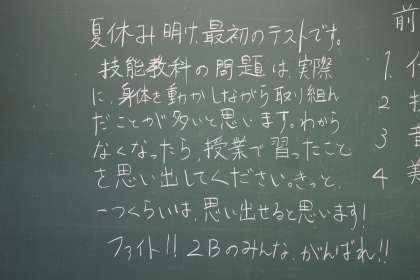 夏休み明け、最初のテストです。
技能教科の問題は、実際
に、身体を動かしながら取り組ん
だことが多いと思います。わから
なくなったら、授業で習ったこと
を思い出してください。きっと、
一つくらいは、思い出せると思います!
ファイト!! 2Bのみんな、がんばれ!!
前
1.
2
3
4 美